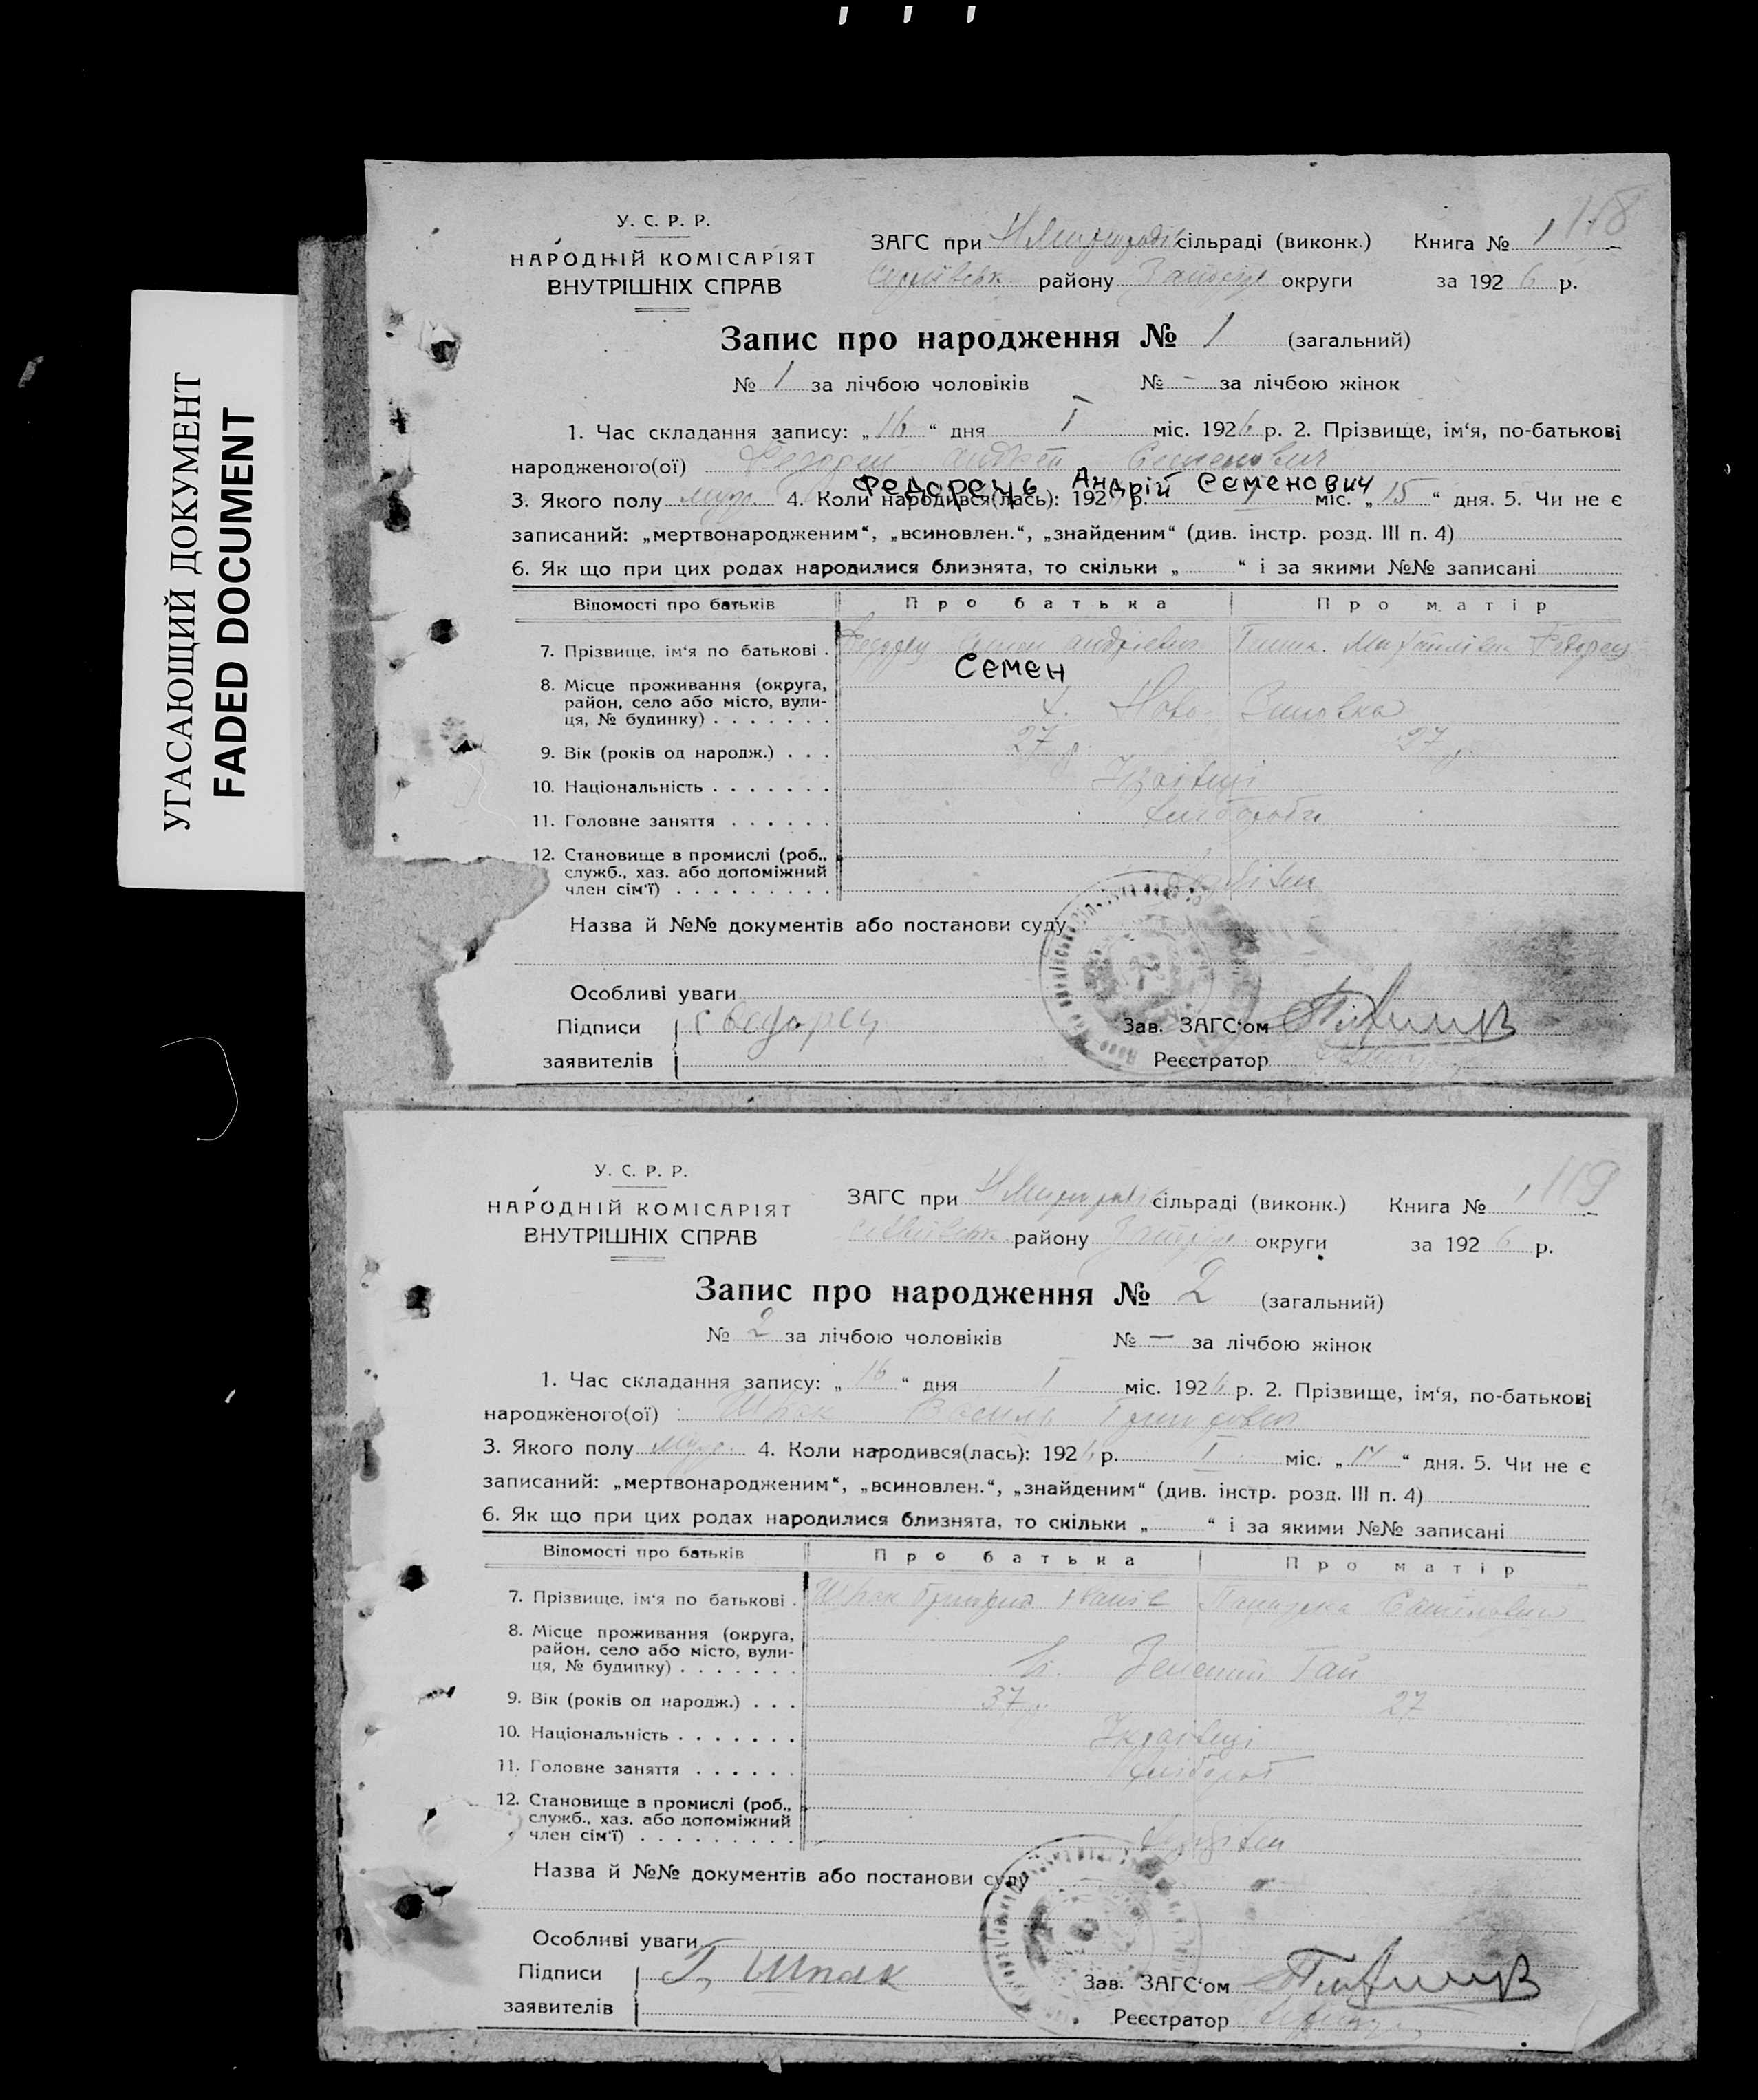 УГАСАЮЩИЙ ДОКУМЕНТ
FADED DOCUMENT
118
У. С. Р. Р.
НАРОДНІЙ КОМІСАРІЯТ
ВНУТРІШНІХ СПРАВ
ЗАГС при сільраді (виконк.) Книга № 1
району округи за 1926 р.
Запис про народження № 1 (загальний)
№ 1 за лічбою чоловіків № - за лічбою жінок
1. Час складання запису: „16“ дня I міс. 1926 р. 2. Прізвище, ім‘я, по-батькові
народженого(ої) Федорец Андрей Семенович
Федорець Андрій Семенович
3. Якого полу муж. 4. Коли народився(лась): 192 р. I міс. „15“ дня. 5. Чи не є
записаний: „мертвонародженим“, „всиновлен.“, „знайденим“ (див. інстр. розд. III п. 4)
6. Як що при цих родах народилися близнята, то скільки „ “ і за якими №№ записані
Відомості про батьків Про батька Про матір
7. Прізвище, ім‘я по батькові . Федорец Семен Андрієвич Михайлівна Федорец
Семен
8. Місце проживання (округа,
район, село або місто, вули-
ця, № будинку) . . . . . . . Х. Ново-
9. Вік (років од народж.) . . . 27 р. 27 р.
10. Національність . . . . . . . Українці
11. Головне заняття . . . . . . хлібороби
12. Становище в промислі (роб.,
служб., хаз. або допоміжний
член сім‘ї) . . . . . . . . .
Назва й №№ документів або постанови суду
Особливі уваги
Підписи Федорец Зав. ЗАГС‘ом
заявителів Реєстратор
119
У. С. Р. Р.
НАРОДНІЙ КОМІСАРІЯТ
ВНУТРІШНІХ СПРАВ
ЗАГС при сільраді (виконк.) Книга № 1
району округи за 1926 р.
Запис про народження № 2 (загальний)
№ 2 за лічбою чоловіків № — за лічбою жінок
1. Час складання запису: „16“ дня I міс. 1926 р. 2. Прізвище, ім‘я, по-батькові
народженого(ої) Шпак Василь Григорович
3. Якого полу муж. 4. Коли народився(лась): 1926 р. I міс. „14“ дня. 5. Чи не є
записаний: „мертвонародженим“, „всиновлен.“, „знайденим“ (див. інстр. розд. III п. 4)
6. Як що при цих родах народилися близнята, то скільки „ “ і за якими №№ записані
Відомості про батьків Про батька Про матір
7. Прізвище, ім‘я по батькові . Шпак Григорій Іванів
8. Місце проживання (округа,
район, село або місто, вули-
ця, № будинку) . . . . . . . Х. Зелений Гай
9. Вік (років од народж.) . . . 37 р. 27
10. Національність . . . . . . . Українці
11. Головне заняття . . . . . . Хлібороб
12. Становище в промислі (роб.,
служб., хаз. або допоміжний
член сім‘ї) . . . . . . . . .
Назва й №№ документів або постанови суду
Особливі уваги
Підписи Г. Шпак Зав. ЗАГС‘ом
заявителів Реєстратор